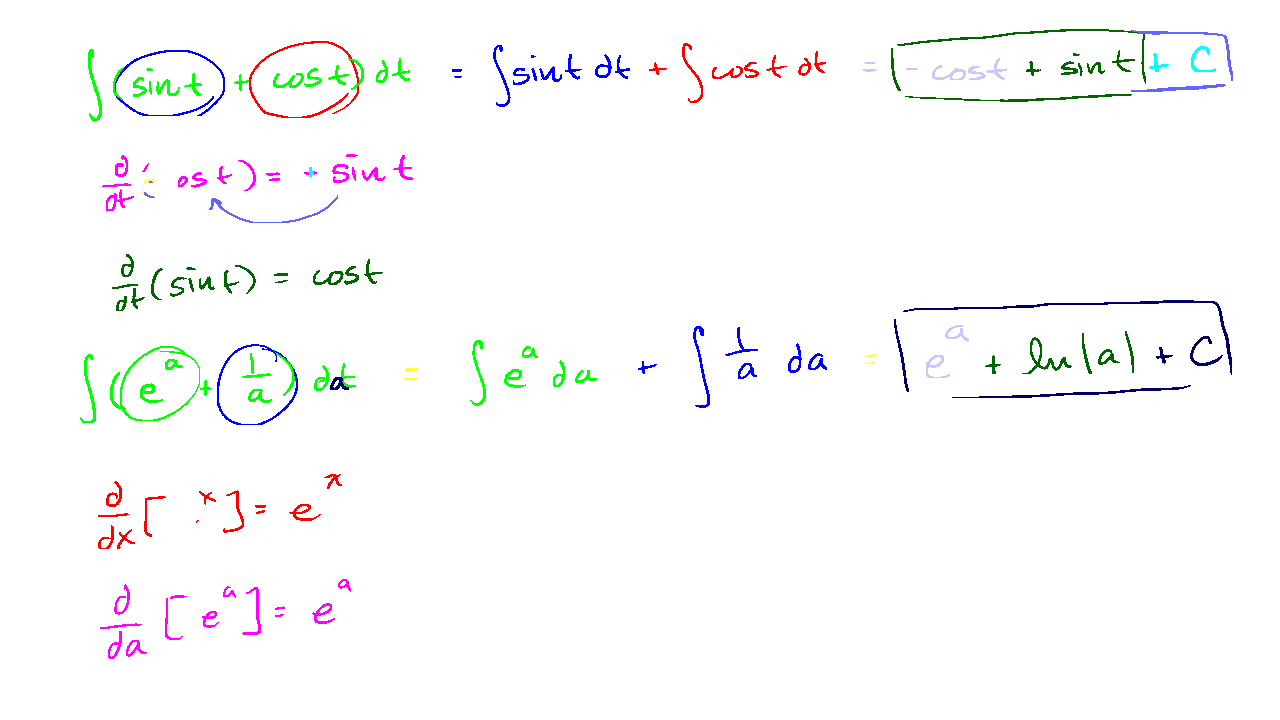 ∫(sin t + cos t) dt = ∫ sin t dt + ∫ cos t dt = - cos t + sin t + C
d/dt (- os t) = + sin t
d/dt (sin t) = cos t
∫(e^a + 1/a) da = ∫ e^a da + ∫ 1/a da = e^a + ln|a| + C
d/dx [ x ] = e^x
d/da [ e^a ] = e^a